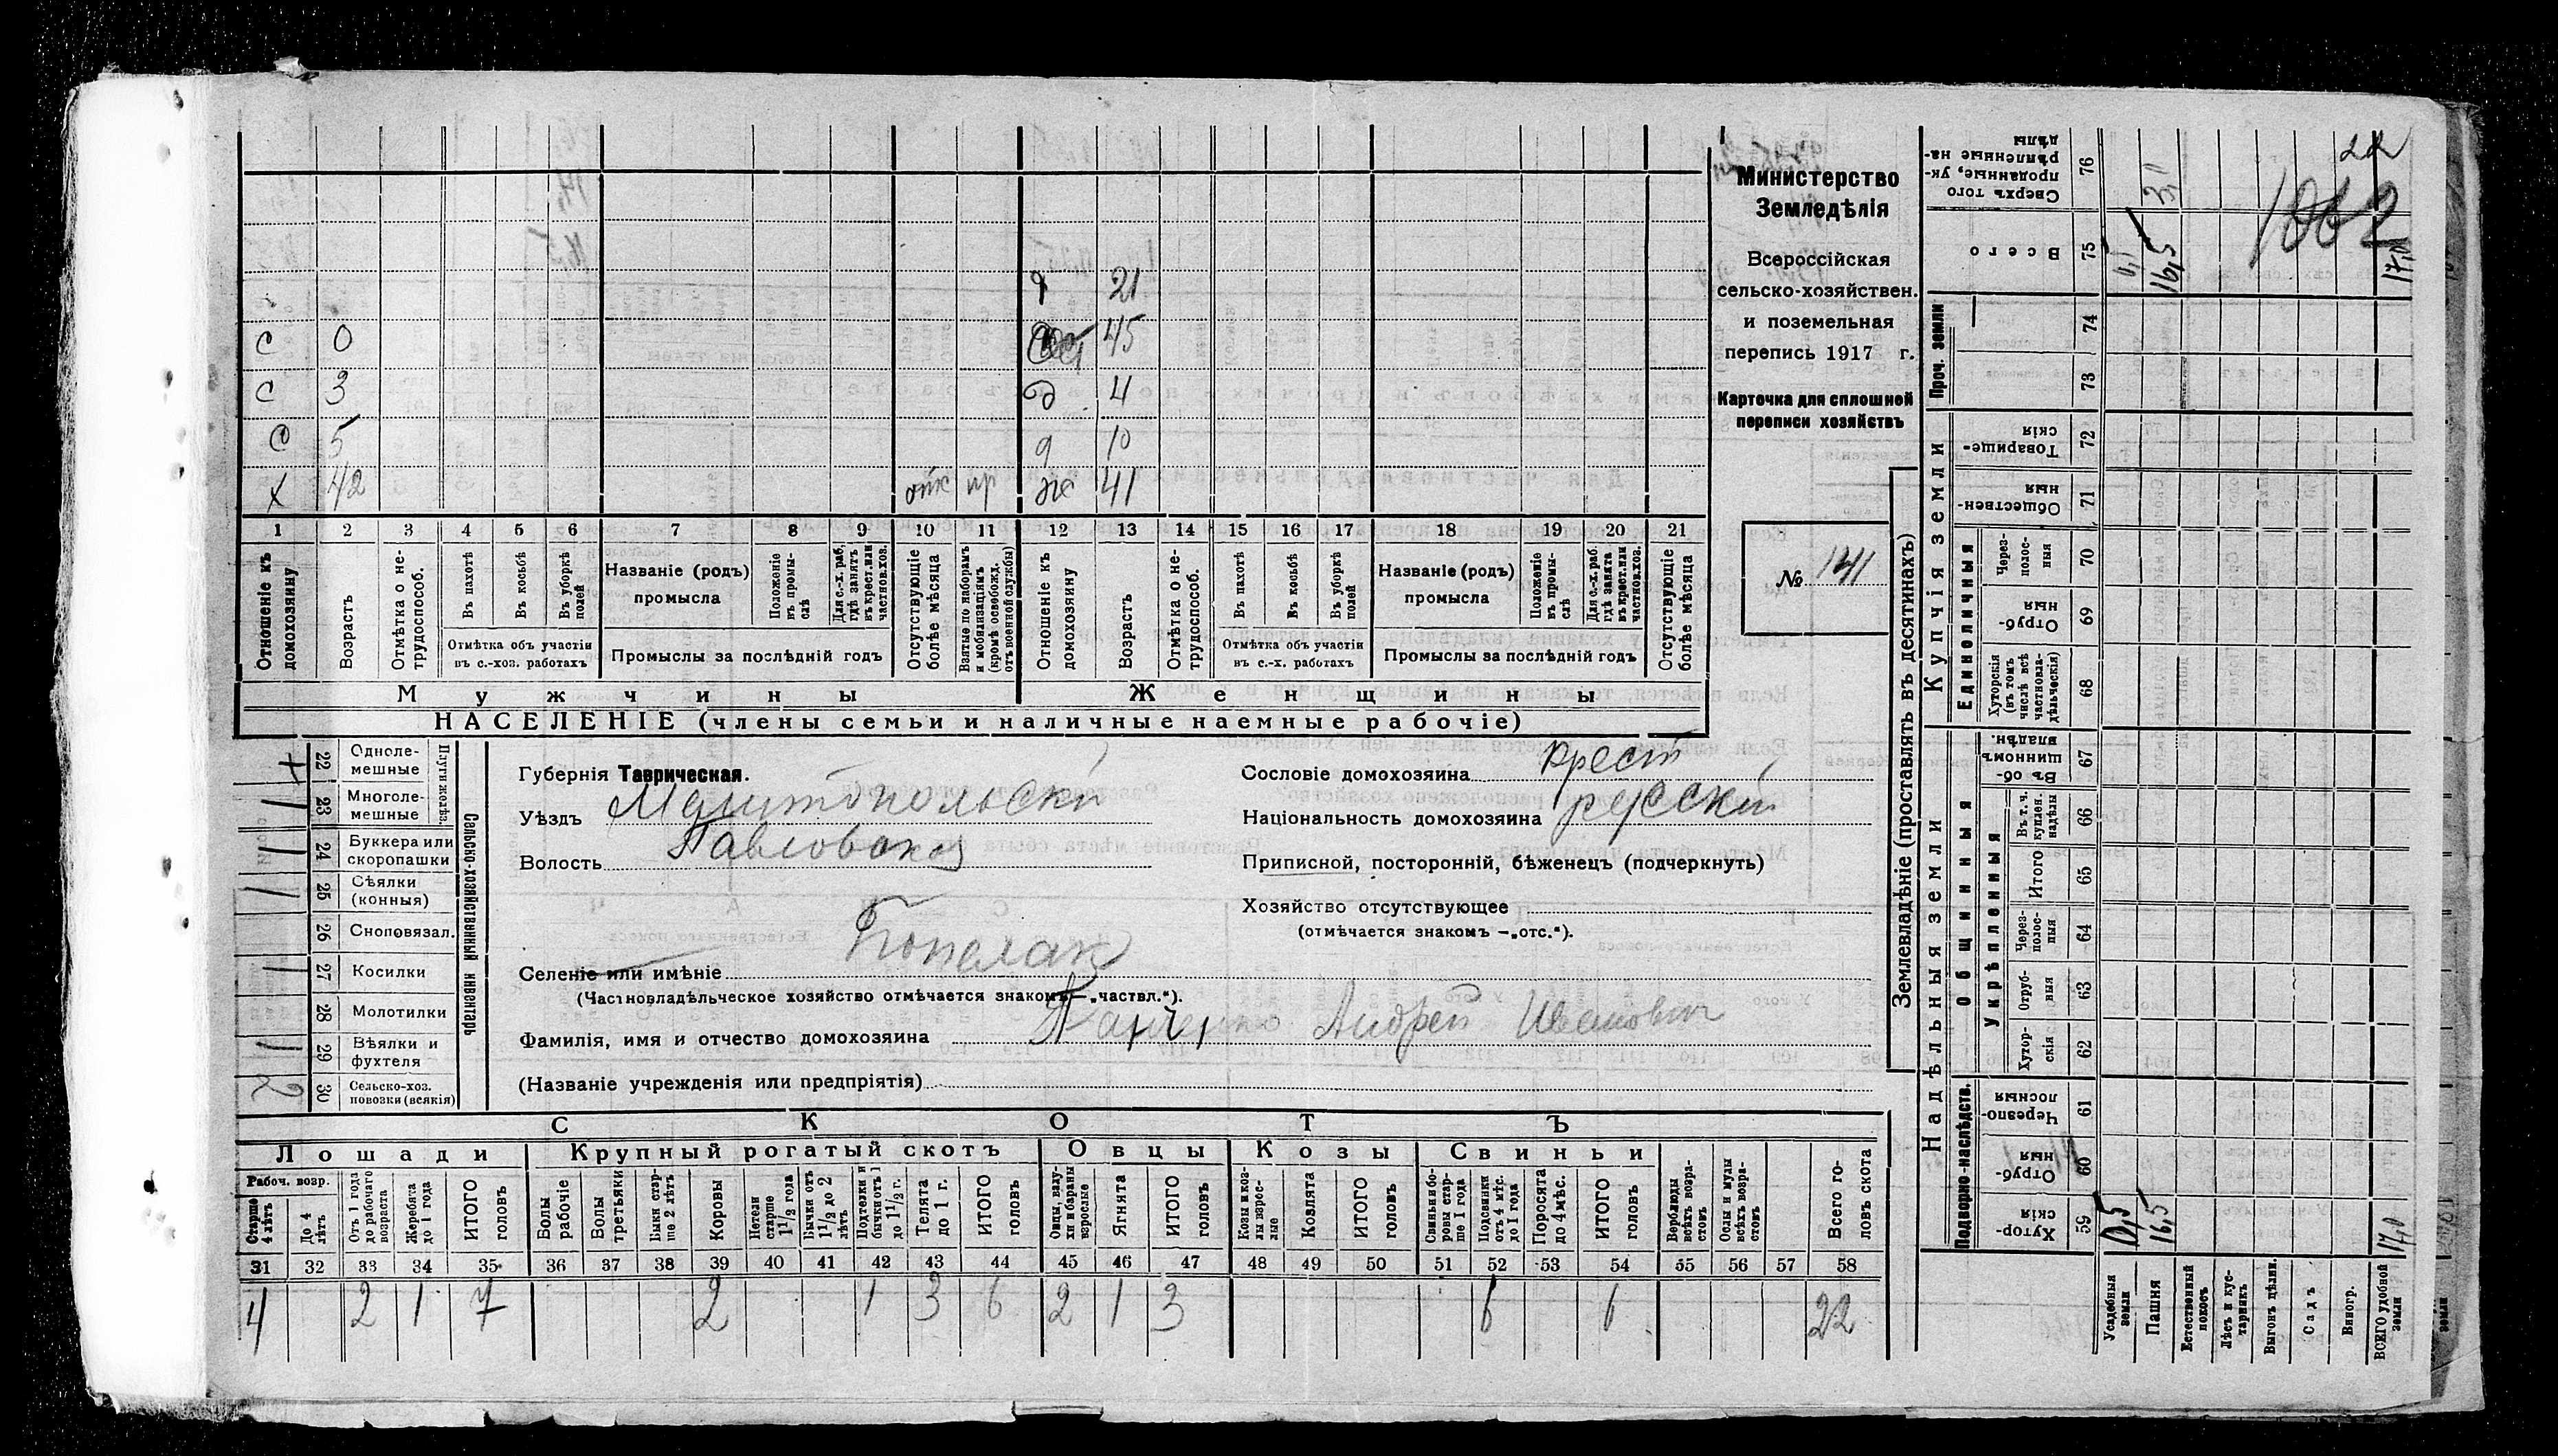 22
1062
С 0 21
С 3 45
С 5 д 4
Х 42 отс пр д 10
ж 41
1 2 3 4 5 6 7 8 9 10 11 12 13 14 15 16 17 18 19 20 21
Отношеніе къ домохозяину
Возрастъ
Отмѣтка о нетрудоспособ.
Въ пахотѣ
Въ косьбѣ
Въ уборкѣ полей
Отмѣтка объ участіи въ с.-хоз. работахъ
Названіе (родъ) промысла
Положеніе въ промыслѣ
Для с.-х. раб. гдѣ занятъ въ крест. или частнов. хоз.
Промыслы за послѣдній годъ
Отсутствующіе болѣе мѣсяца
Взятые по наборамъ и мобилизаціямъ (кромѣ освобожд. отъ военной службы)
Отношеніе къ домохозяину
Возрастъ
Отмѣтка о нетрудоспособ.
Въ пахотѣ
Въ косьбѣ
Въ уборкѣ полей
Отмѣтка объ участіи въ с.-х. работахъ
Названіе (родъ) промысла
Положеніе въ промыслѣ
Для с.-х. раб. гдѣ занята въ крест. или частнов. хоз.
Промыслы за послѣдній годъ
Отсутствующіе болѣе мѣсяца
Мужчины Женщины
НАСЕЛЕНІЕ (члены семьи и наличные наемные рабочіе)
Министерство
Земледѣлія
Всероссійская
сельско-хозяйствен.
и поземельная
перепись 1917 г.
Карточка для сплошной
переписи хозяйствъ
№ 141
Сельско-хозяйственный инвентарь
Плуги желѣз.
22 Однолемешные
23 Многолемешные 1
24 Буккера или скоропашки 1
25 Сѣялки (конныя) 1
26 Сноповязал.
27 Косилки 1
28 Молотилки
29 Вѣялки и фухтеля 1
30 Сельско-хоз. повозки (всякія) 2
Губернія Таврическая.
Уѣздъ Мелитопольскй
Волость Павловская
Селеніе или имѣніе
(Частновладѣльческое хозяйство отмѣчается знакомъ—„частвл.“).
Фамилія, имя и отчество домохозяина Панченко Андрей Иванович
(Названіе учрежденія или предпріятія)
Сословіе домохозяина крест
Національность домохозяина русский
Приписной, посторонній, бѣженецъ (подчеркнуть)
Хозяйство отсутствующее
(отмѣчается знакомъ —„отс.“).
СКОТЪ
Лошади Крупный рогатый скотъ Овцы Козы Свиньи
Рабоч. возр.
Старше 4 лѣтъ
До 4 лѣтъ
Отъ 1 года до рабочаго возраста
Жеребята до 1 года
ИТОГО головъ
Волы рабочіе
Волы третьяки
Быки старше 2 лѣтъ
Коровы
Нетели старше 1½ года
Бычки отъ 1½ до 2 лѣтъ
Подтелки и бычки отъ 1 до 1½ г.
Телята до 1 г.
ИТОГО головъ
Овцы, валухи и бараны взрослые
Ягнята
ИТОГО головъ
Козы и козлы взрослые
Козлята
ИТОГО головъ
Свиньи и боровы старше 1 года
Подсвинки отъ 4 мѣс. до 1 года
Поросята до 4 мѣс.
ИТОГО головъ
Верблюды всѣхъ возрастовъ
Ослы и мулы всѣхъ возрастовъ
Всего головъ скота
31 32 33 34 35 36 37 38 39 40 41 42 43 44 45 46 47 48 49 50 51 52 53 54 55 56 57 58
4 2 1 7 2 1 3 6 2 1 3 6 6 22
Землевладѣніе (проставлять въ десятинахъ)
Надѣльныя земли
Купчія земли
Проч. земли
Подворно-наслѣдств.
Общинныя
Укрѣпленныя
Единоличныя
Хуторскія 59 0,5 16,5 17,0
Отрубныя 60
Черезполосныя 61
Хуторскія 62
Отрубныя 63
Черезполосныя 64
Итого 65
Въ т. ч. куплен. надѣлы 66
Въ общинномъ владѣн. 67
Хуторскія (въ томъ числѣ всѣ частновладѣльческія) 68
Отрубныя 69
Черезполосныя 70
Общественныя 71
Товарищескія 72
73
74
Всего 75 16,5 17,0
Сверхъ того проданные, укрѣпленные надѣлы 76
Усадебныя земли
Пашня
Естественный покосъ
Лѣсъ и кустарникъ
Выгонъ цѣлин.
Садъ
Виногр.
ВСЕГО удобной земли